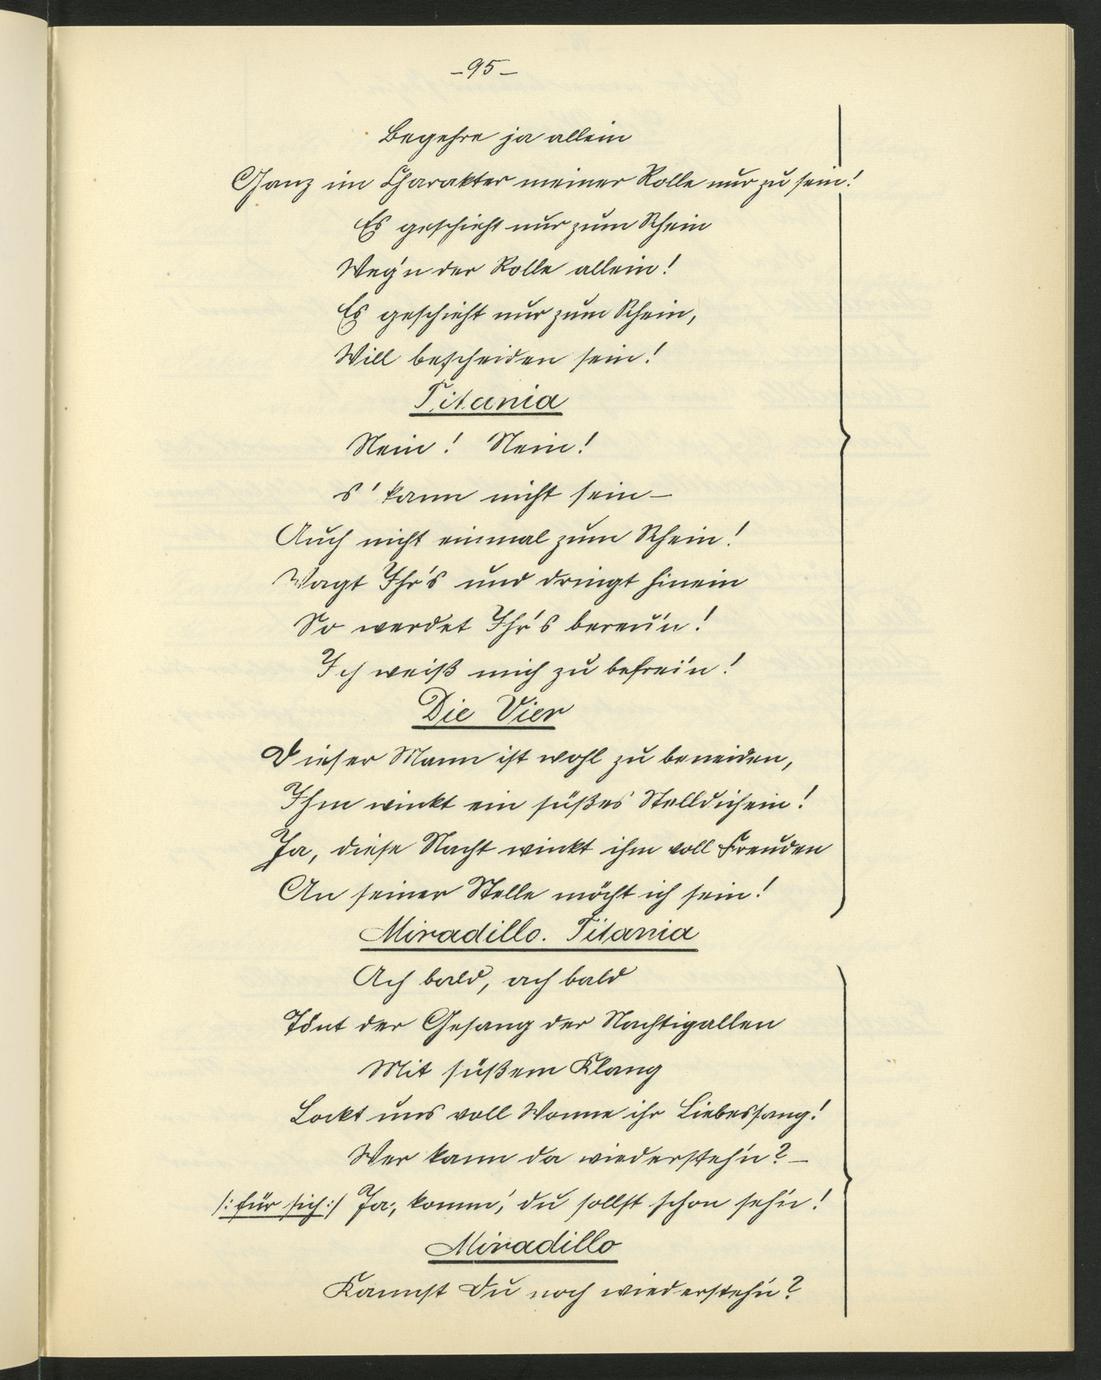 -95-
Begehre ja allein
Ganz im Charakter meiner Rolle nur zu sein!
Es geschieht nur zum Schein
Weg'n der Rolle allein!
Es geschieht nur zum Schein,
Will bescheiden sein!
Titania
Nein! Nein!
s' kann nicht sein—
Auch nicht einmal zum Schein!
Wagt Ihr's und dringt hinein
So werdet Ihr's bereu'n!
Ich weiß mich zu befrei'n!
Die Vier
Dieser Mann ist wohl zu beneiden,
Ihm winkt ein süßes Stelldichein!
Ja, diese Nacht winkt ihm voll Freuden
An seiner Stelle möcht ich sein!
Miradillo. Titania
Ach bald, ach bald
Tönt der Gesang der Nachtigallen
Mit süßem Klang
Lockt uns voll Wonne ihr Liebessang!
Wer kann da wiedersteh'n?—
/:für sich:/ Ja, komm', du sollst schon seh'n!
Miradillo
Kannst Du noch wiedersteh'n?